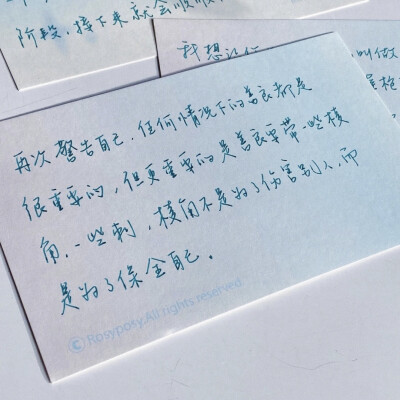 阶段，接下来就会顺顺
我想
叫做
再次警告自己，任何情况下的善良都是
很重要的，但更重要的是善良要带一些棱
角，一些刺，棱角不是为了伤害别人，而
是为了保全自己。
©Rosyposy.All rights reserved